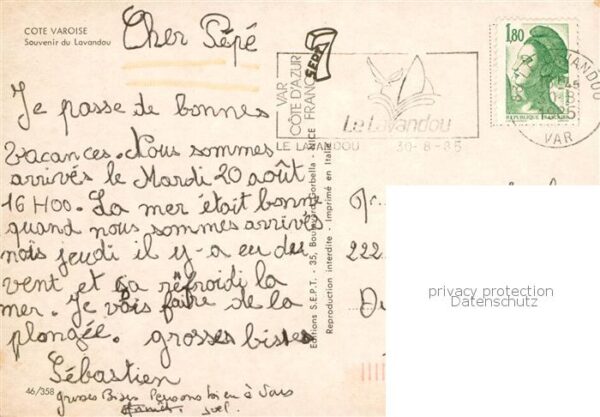 COTE VAROISE
Souvenir du Lavandou
Cher Pépé
Je passe de bonnes
vacances. Nous sommes
arrivés le Mardi 20 août
16 H00. La mer était bonne
quand nous sommes arrivés
mais jeudi il y-a eu du
vent et ça réfroidi la
mer. Je vais faire de la
plongée. grosses bises
Sébastien
46/358
grosses Bises Pensons bien à Vous
Joël
SEPT
VAR
CÔTE D'AZUR
FRANCE
Le Lavandou
LE LAVANDOU 30-8-85
1,80
REPUBLIQUE FRANÇAISE
LAVANDOU
VAR
Editions S.E.P.T. - 35, Boulevard Gorbella - NICE
Reproduction interdite - Imprimé en Italie
222
privacy protection
Datenschutz